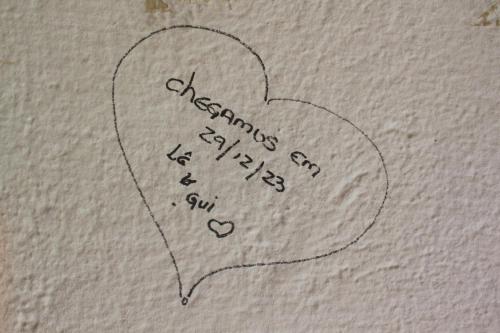 CHEGAMOS EM
29/12/23
Lê
&
GUI